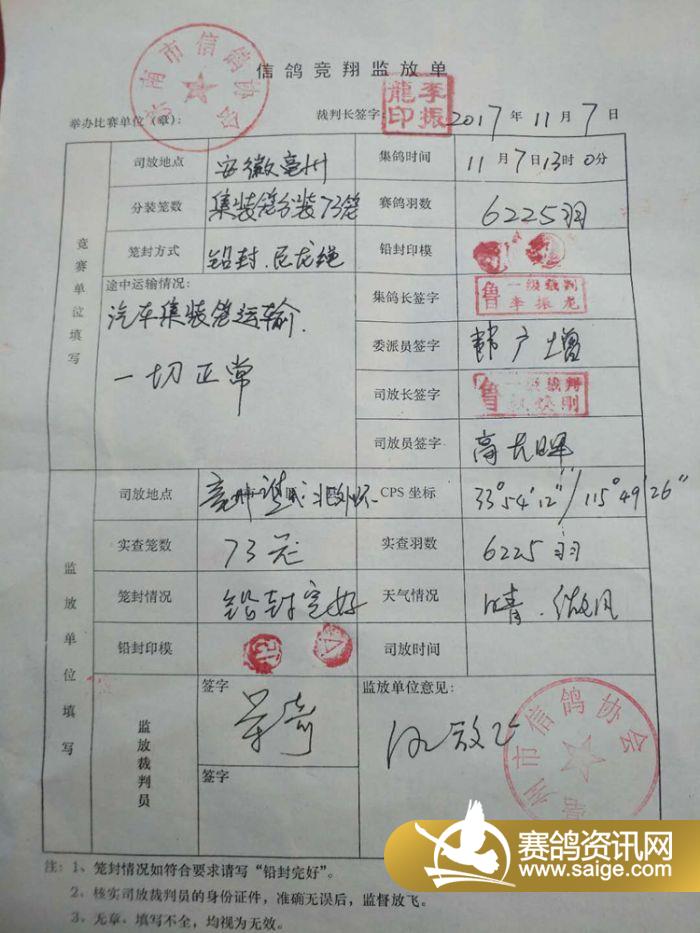 信鸽竞翔监放单
南市信鸽协会
举办比赛单位（章）：
裁判长签字：
季振龍印
2017年11月7日
竞赛单位填写
司放地点 安徽亳州 集鸽时间 11月7日13时0分
分装笼数 集装笼分装73笼 赛鸽羽数 6225羽
笼封方式 铅封.尼龙绳 铅封印模
途中运输情况：
汽车集装笼运输.
一切正常
集鸽长签字 鲁 一级裁判 李振龙
委派员签字 韩广增
司放长签字 鲁 一级裁判 焕刚
司放员签字 高大晖
监放单位填写
司放地点 亳州谯 北外环 CPS 坐标 33°54′12″/115°49′26″
实查笼数 73 实查羽数 6225羽
笼封情况 铅封完好 天气情况 晴.微风
铅封印模 司放时间
监放裁判员
签字
签字
监放单位意见：
同意放飞
亳州市信鸽协会
注：1、笼封情况如符合要求请写“铅封完好”。
2、核实司放裁判员的身份证件，准确无误后，监督放飞。
3、无章、填写不全，均视为无效。
赛鸽资讯网
www.saige.com